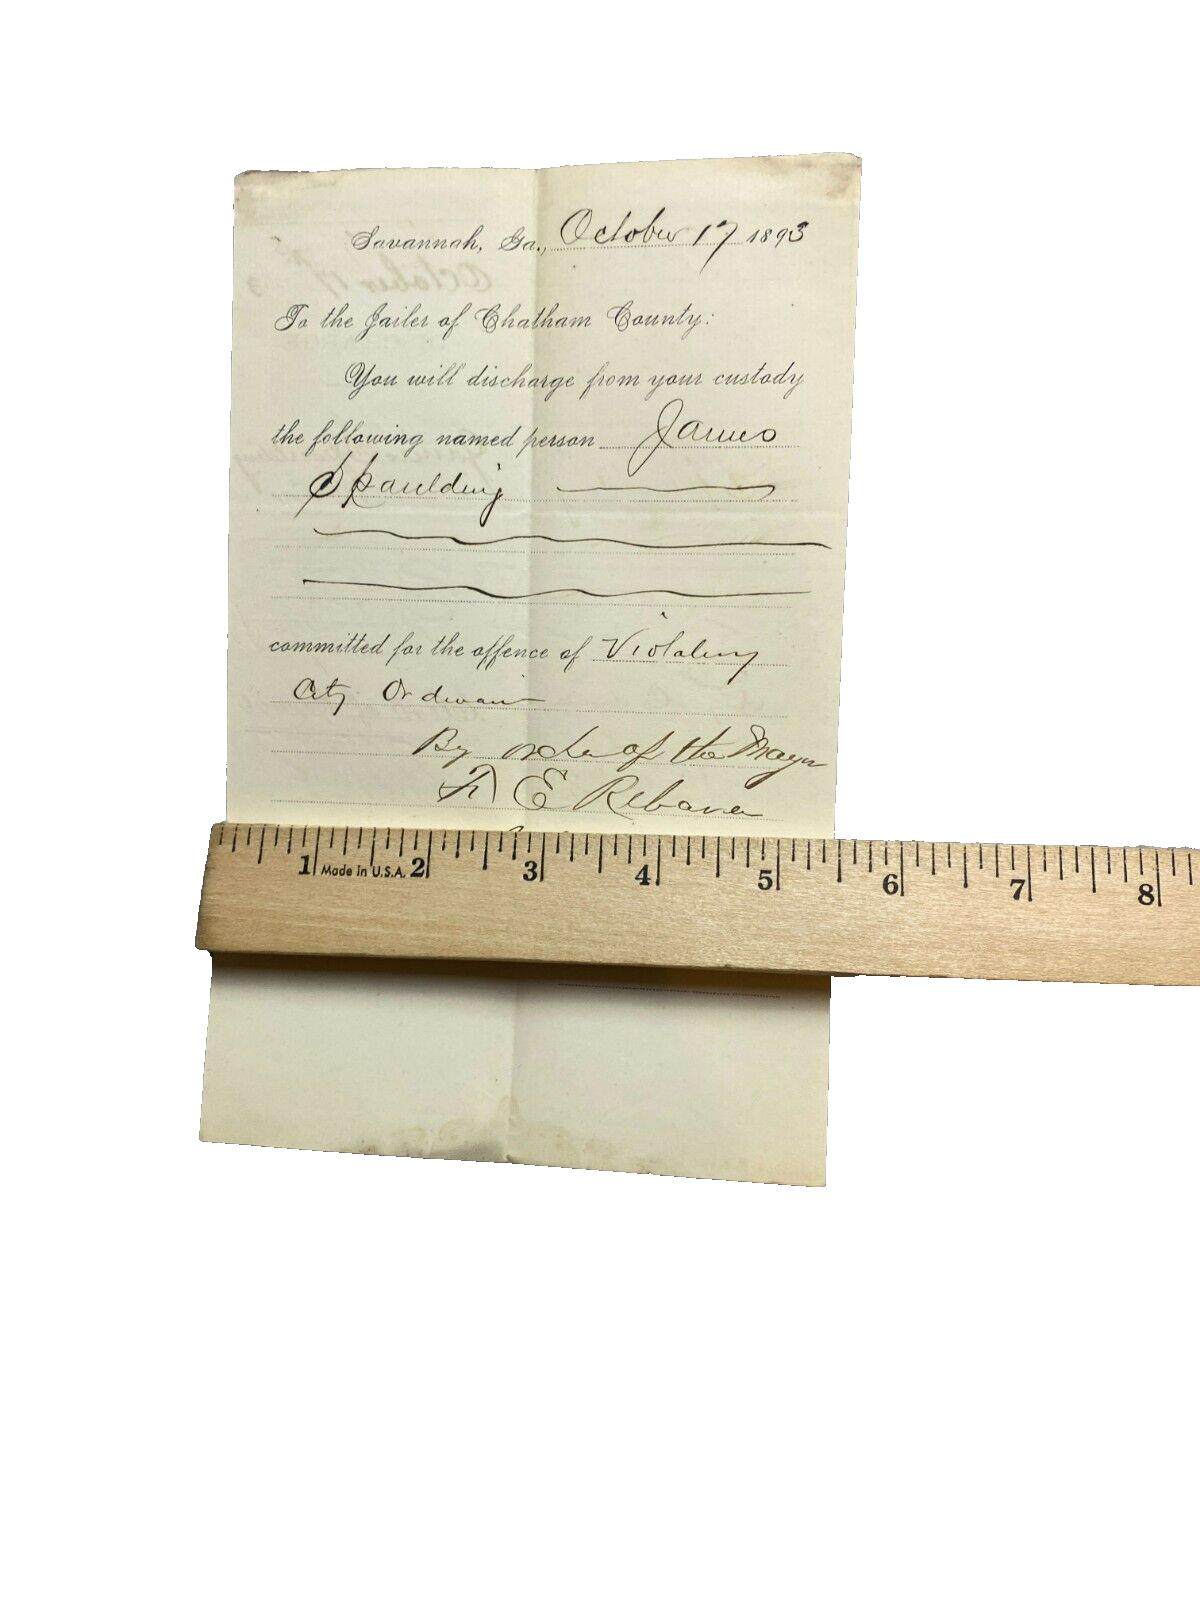 Savannah, Ga., October 17 1893
To the Jailer of Chatham County:
You will discharge from your custody
the following named person James
Spaulding
committed for the offence of Violating
City Ordinance
By order of the Mayor
F E Rebarer
1 Made in U.S.A. 2 3 4 5 6 7 8